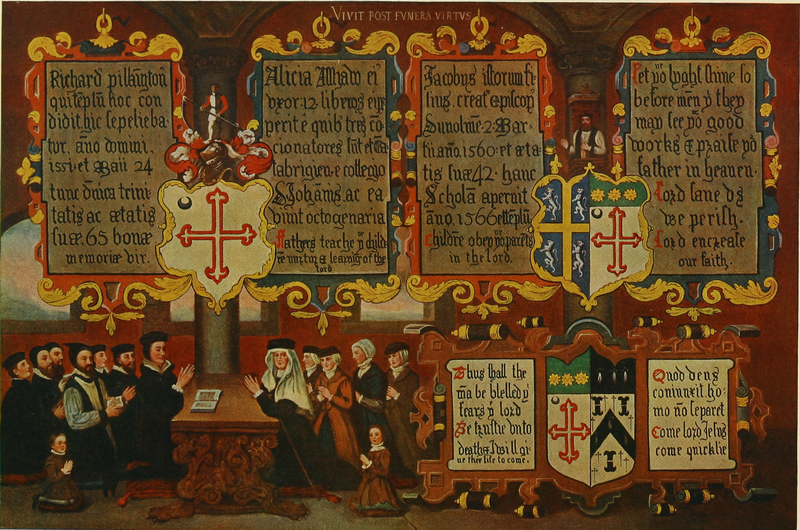 VIVIT POST FVNERA VIRTVS
Richard pilkington
qui teplū hoc con
didit hic sepelieba-
tur. año domini.
1551 et Maii 24
tunc dnica trini
tatis ac ætatis
suæ 65 bonæ
memoriæ vir.
Alicia Asshaw ei
vxor. 12 liberos eius
perit è quib tres cō
cionatores sūt et Cā
tabrigien. e collegio
S. Johānis, ac ea
vivit octogenaria
Fathers teache yr child
rē nurtur & learnīg of the
lord
Jacobus istorum fi
lius, creat9 episcop9
Dunolmē 2. Mar-
tii año. 1560. et æta-
tis suæ 42. hanc
Scholā aperuit
año. 1566 et teplū
Childrē obey yr parēts
in the lord.
Let yor lyght shine so
before men yt they
may see yor good
works & praise yor
father in heauen.
Lord saue vs
we perish.
Lord encrease
our faith.
Thus shall the
mā be blessed yt
fears ye lord
Be trustie vnto
death & I will gi
ue thee life to come.
Quod deus
coniunxit ho-
mo nō separet
Come lord Jesus
come quicklie